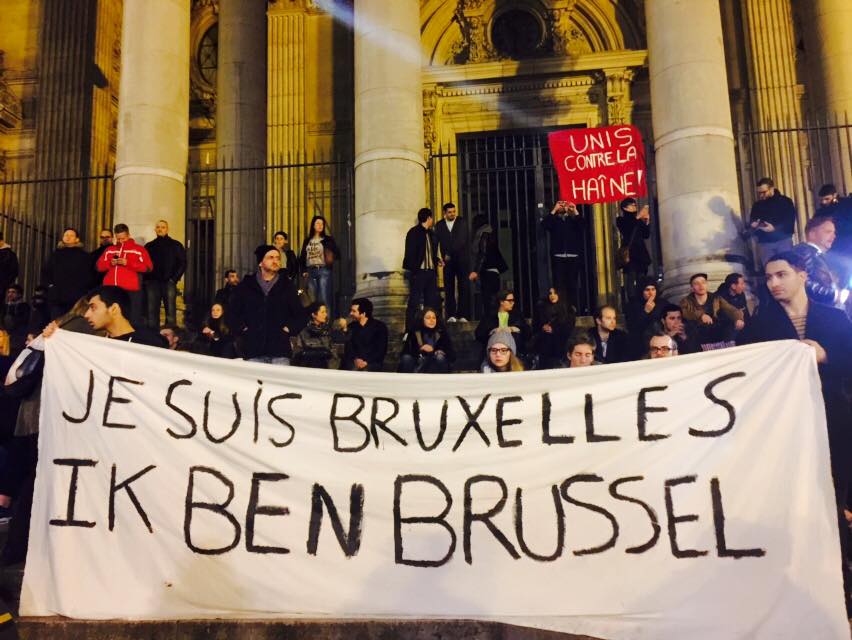 UNIS
CONTRE LA
HAÎNE!
JE SUIS BRUXELLES
IK BEN BRUSSEL